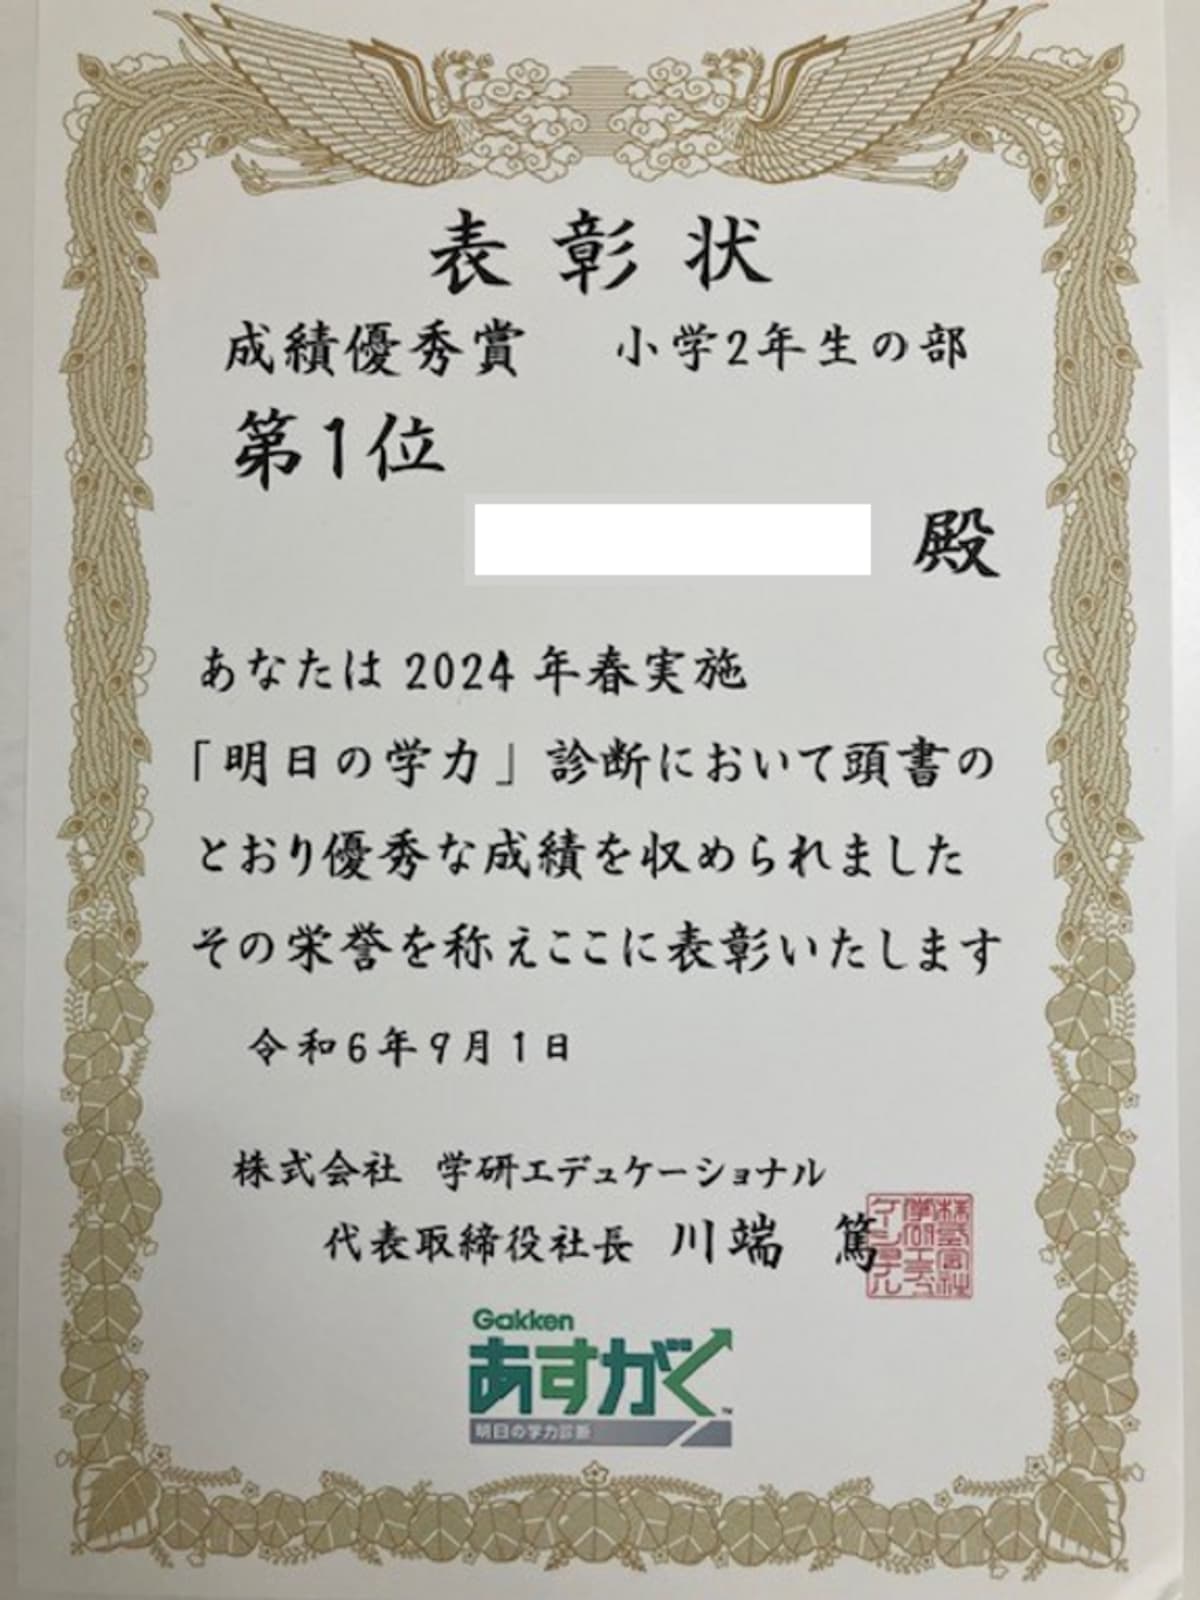 表彰状
成績優秀賞　小学2年生の部
第1位
殿
あなたは2024年春実施
「明日の学力」診断において頭書の
とおり優秀な成績を収められました
その栄誉を称えここに表彰いたします
令和6年9月1日
株式会社　学研エデュケーショナル
代表取締役社長　川端　篤
株式会社学研エデュケーショナル
Gakken
あすがく™
明日の学力診断